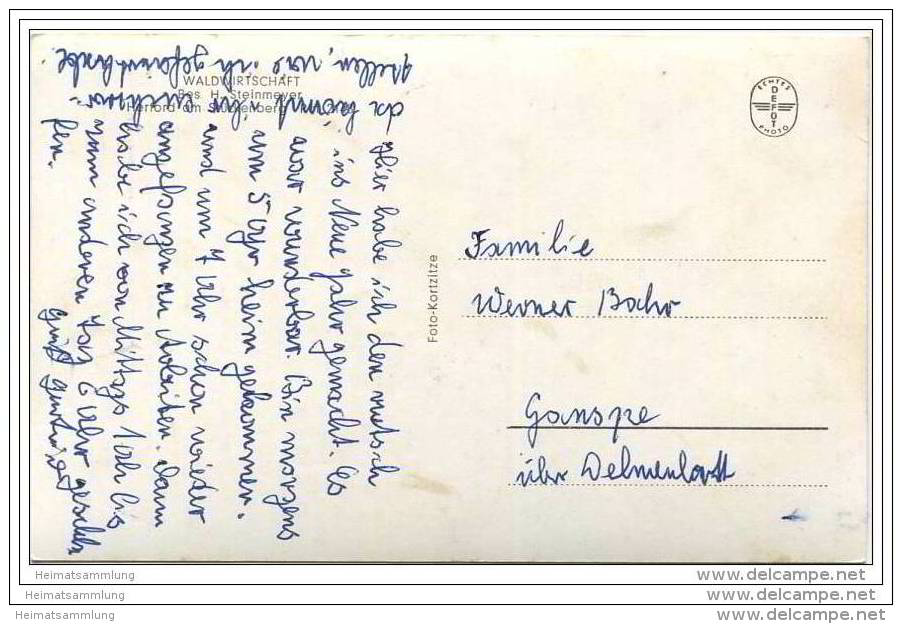 WALDWIRTSCHAFT
Bes H. Steinmeyer
Herford am Stuckenberg
Foto-Kortzitze
ECHTES
DEFOT
PHOTO
Familie
Werner Bahr
Ganspe
über Delmenhorst
Hier habe ich den rutsch
ins Neue Jahr gemacht. Es
war wunderbar. Bin morgens
um 5 Uhr heim gekommen.
und um 7 Uhr schon wieder
angefangen zu Arbeiten. Dann
habe ich von Mittags 1 Uhr bis
zum anderen Tag 6 Uhr geschla
fen.
da könnt ihr euch vor-
stellen, wie ich gefeiert habe.
Heimatsammlung
Heimatsammlung
Heimatsammlung
www.delcampe.net
www.delcampe.net
www.delcampe.net